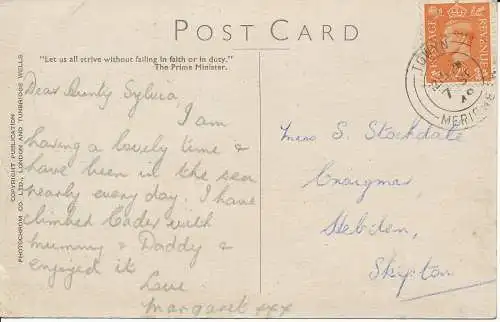 POST CARD
"Let us all strive without failing in faith or in duty."
The Prime Minister.
Dear Aunty Sylvia,
I am
having a lovely time &
have been in the sea
nearly every day. I have
climbed Cader with
mummy & Daddy &
enjoyed it
Love
Margaret xxx
Miss S. Stockdale
Craigmar,
Hebden,
Skipton
COPYRIGHT PUBLICATION
PHOTOCHROM CO. LTD., LONDON AND TUNBRIDGE WELLS
POSTAGE
REVENUE
TOWYN
MERION